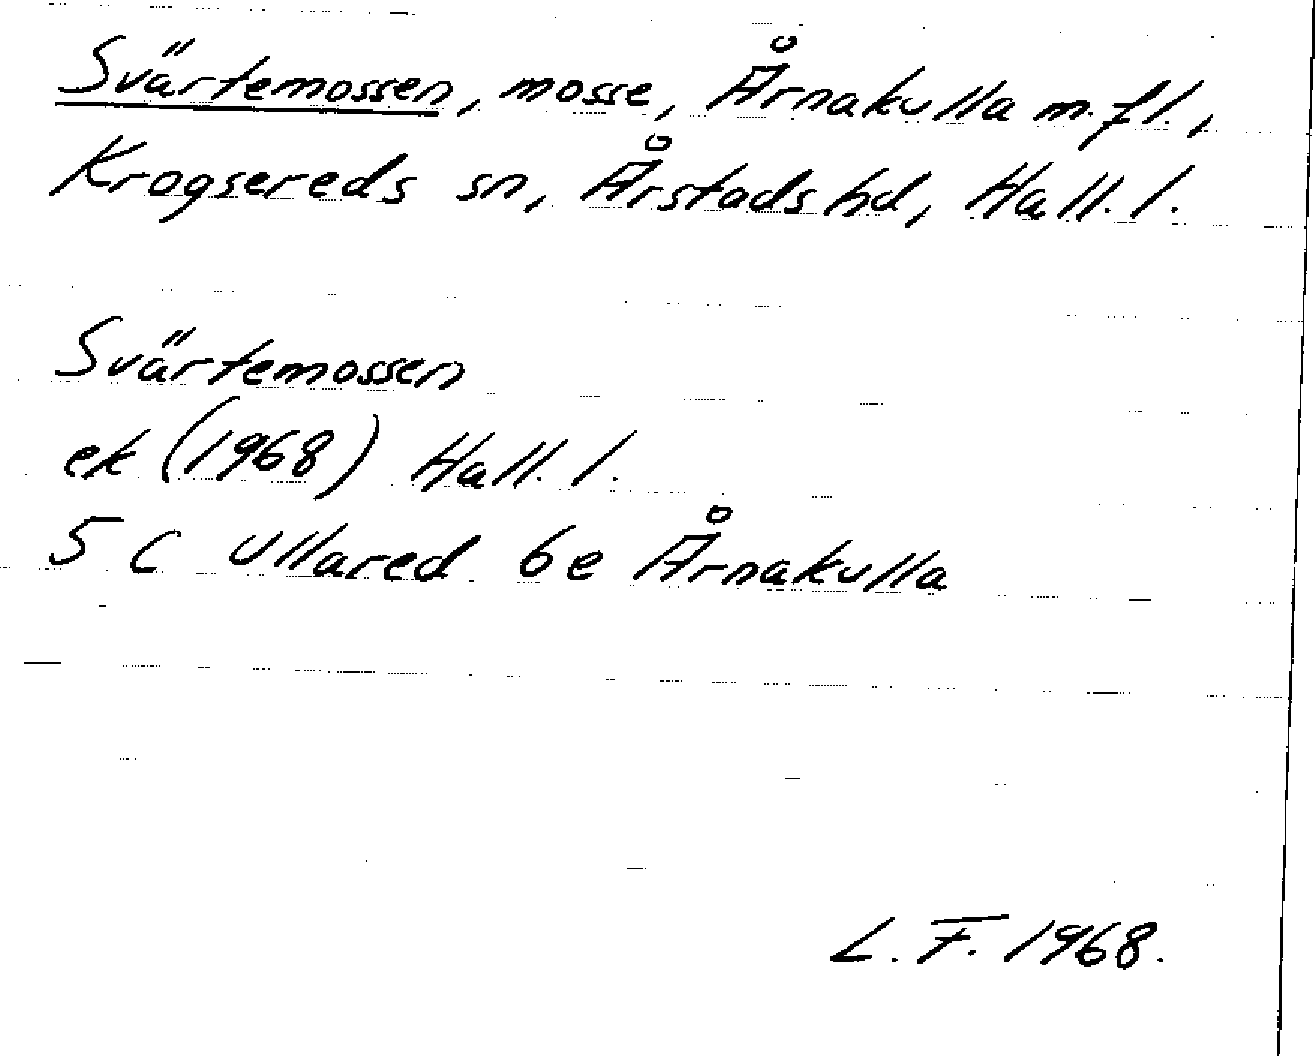 Svärtemossen, mosse, Årnakulla m.fl.,
Krogsereds sn, Årstads hd, Hall. l.
Svärtemossen
ek (1968) Hall. l.
5 C Ullared 6e Årnakulla
L. F. 1968.